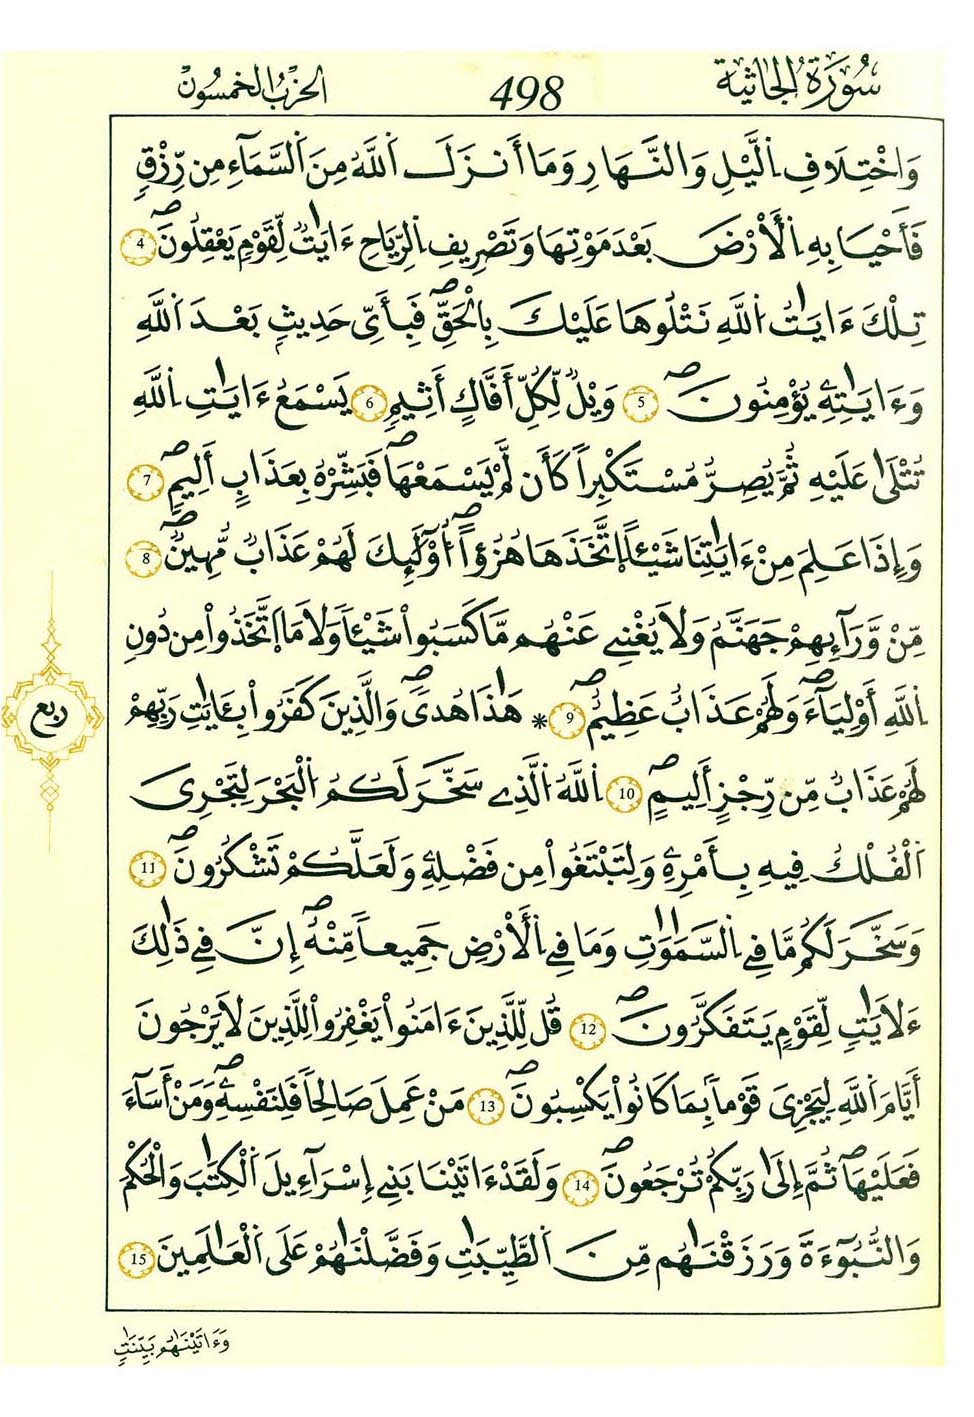 سُورَةُ الجَاثِيَة 498 الحِزْبُ الخَمْسُونَ
وَاخْتِلَافِ اِ۬لَّيْلِ وَالنَّهَارِ وَمَا أَنزَلَ اَ۬للَّهُ مِنَ اَ۬لسَّمَآءِ مِن رِّزْقٖ
فَأَحْيَا بِهِ اِ۬لْأَرْضَ بَعْدَ مَوْتِهَا وَتَصْرِيفِ اِ۬لرِّيَٰحِ ءَايَٰتٞ لِّقَوْمٖ يَعْقِلُونَۖ 4
تِلْكَ ءَايَٰتُ اُ۬للَّهِ نَتْلُوهَا عَلَيْكَ بِالْحَقِّۖ فَبِأَيِّ حَدِيثِۢ بَعْدَ اَ۬للَّهِ
وَءَايَٰتِهِۦ يُؤْمِنُونَۖ 5 وَيْلٞ لِّكُلِّ أَفَّاكٍ أَثِيمٖ 6 يَسْمَعُ ءَايَٰتِ اِ۬للَّهِ
تُتْلَىٰ عَلَيْهِ ثُمَّ يُصِرُّ مُسْتَكْبِراٗ كَأَن لَّمْ يَسْمَعْهَاۖ فَبَشِّرْهُ بِعَذَابٍ أَلِيمٖۖ 7
وَإِذَا عَلِمَ مِنْ ءَايَٰتِنَا شَيْـٔاً اِ۪تَّخَذَهَا هُزُؤاًۖ ا۟وْلَٰٓئِكَ لَهُمْ عَذَابٞ مُّهِينٞۖ 8
مِّنْ وَّرَآئِهِمْ جَهَنَّمُ وَلَا يُغْنِے عَنْهُم مَّا كَسَبُواْ شَيْـٔاٗ وَلَا مَا اَ۪تَّخَذُواْ مِن دُونِ
اِ۬للَّهِ أَوْلِيَآءَۖ وَلَهُمْ عَذَابٌ عَظِيمٌۖ 9 * هَٰذَا هُدىٗۖ وَالَّذِينَ كَفَرُواْ بِـَٔايَٰتِ رَبِّهِمْ
لَهُمْ عَذَابٞ مِّن رِّجْزٍ أَلِيمٖۖ 10 اِ۬للَّهُ اُ۬لَّذِے سَخَّرَ لَكُمُ اُ۬لْبَحْرَ لِتَجْرِىَ
اَ۬لْفُلْكُ فِيهِ بِأَمْرِهِۦ وَلِتَبْتَغُواْ مِن فَضْلِهِۦ وَلَعَلَّكُمْ تَشْكُرُونَۖ 11
وَسَخَّرَ لَكُم مَّا فِے اِ۬لسَّمَٰوَٰتِ وَمَا فِے اِ۬لْأَرْضِ جَمِيعاٗ مِّنْهُۖ إِنَّ فِے ذَٰلِكَ
ءَلَايَٰتٖ لِّقَوْمٖ يَتَفَكَّرُونَۖ 12 قُل لِّلَّذِينَ ءَامَنُواْ يَغْفِرُواْ لِلَّذِينَ لَا يَرْجُونَ
أَيَّامَ اَ۬للَّهِ لِيَجْزِىَ قَوْماَۢ بِمَا كَانُواْ يَكْسِبُونَۖ 13 مَنْ عَمِلَ صَالِحاٗ فَلِنَفْسِهِۦۖ وَمَنْ أَسَآءَ
فَعَلَيْهَاۖ ثُمَّ إِلَىٰ رَبِّكُمْ تُرْجَعُونَۖ 14 وَلَقَدْ ءَاتَيْنَا بَنِے إِسْرَآءِيلَ اَ۬لْكِتَٰبَ وَالْحُكْمَ
وَالنُّبُوٓءَةَ وَرَزَقْنَٰهُم مِّنَ اَ۬لطَّيِّبَٰتِ وَفَضَّلْنَٰهُمْ عَلَى اَ۬لْعَٰلَمِينَ 15
وَءَاتَيْنَٰهُم بَيِّنَٰتٖ
ربع